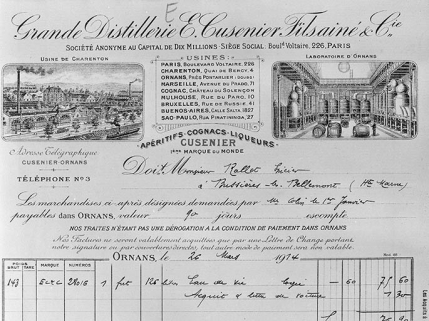 E
Grande Distillerie E. Cusenier Fils aîné & Cie
SOCIÉTÉ ANONYME AU CAPITAL DE DIX MILLIONS SIÈGE SOCIAL Boul.d Voltaire, 226, PARIS
USINE DE CHARENTON
USINES:
LABORATOIRE D'ORNANS
PARIS, BOULEVARD VOLTAIRE 226
CHARENTON, QUAI DE BERCY, 4
ORNANS, PRÈS PONTARLIER (DOUBS)
MARSEILLE, AVENUE DU PRADO,
COGNAC, CHÂTEAU DU SOLENÇON
MULHOUSE, RUE DU PARC, 10
BRUXELLES, RUE DE RUSSIE, 41
BUENOS-AIRES, CALLE SALTA, 1827
SAO-PAULO, RUA PIRATININGA, 27
APÉRITIFS-COGNACS-LIQUEURS
CUSENIER
1ère MARQUE DU MONDE
Adresse Télégraphique
CUSENIER-ORNANS
TÉLÉPHONE N°3
Doit Monsieur
à (Hte Marne)
Les marchandises ci-après désignées demandées par
payables dans ORNANS, valeur 90 jours escompte
NOS TRAITES N'ÉTANT PAS UNE DÉROGATION A LA CONDITION DE PAIEMENT DANS ORNANS
Nos Factures ne seront valablement acquittées que par une Lettre de Change portant
notre signature ou par ouverture directe, tout autre mode de paiement sera non valable.
ORNANS, le 26 Mars 1914
POIDS BRUT TARE MARQUE NUMÉROS
143 1 fût 126 Eau de vie 60 75 60
Acquit & lettre de voiture 30